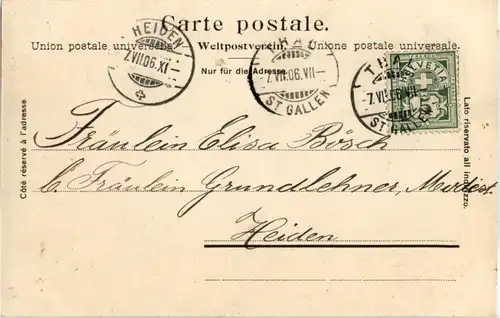 Carte postale.
Union postale universelle. Weltpostverein. Unione postale universale.
Nur für die Adresse.
HEIDEN
7.VII.06.XI—
THAL
-7.VII.06.VII—
ST GALLEN
THAL
-7.VII.06.VII—
ST GALLEN
HELVETIA
Côté réservé à l'adresse
Lato riservato all indirizzo.
Fräulein Elisa Bösch
b. Fräulein Grundlehner, Modist.
Heiden